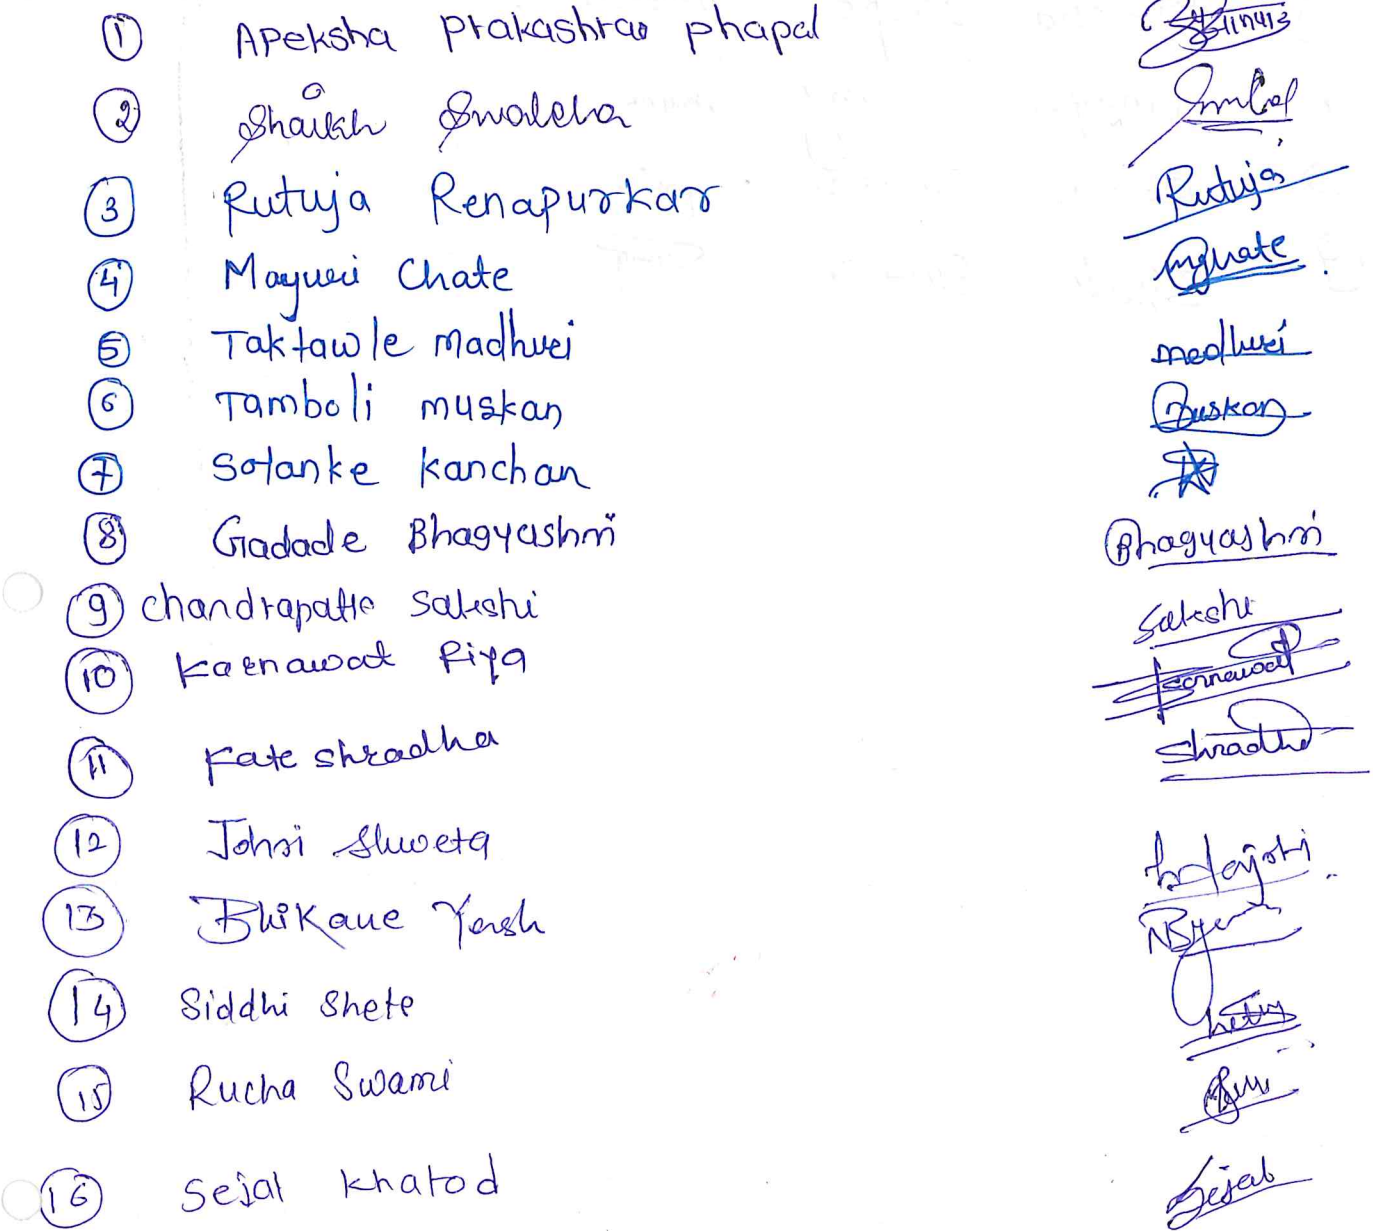 1 Apeksha Prakashrao phapal
2 Shaikh Swaleha
3 Rutuja Renapurkar Rutuja
4 Mayuri Chate
5 Taktawle madhuri madhuri
6 Tamboli muskan Muskan
7 Solanke kanchan
8 Gadade Bhagyashri Bhagyashri
9 chandrapatle Sakshi Sakshi
10 Karnawat Riya Karnawat
11 Kate shradha Shradha
12 Johri Shweta
13 Bhikane Yash
14 Siddhi Shete
15 Rucha Swami
16 Sejal Khatod Sejal